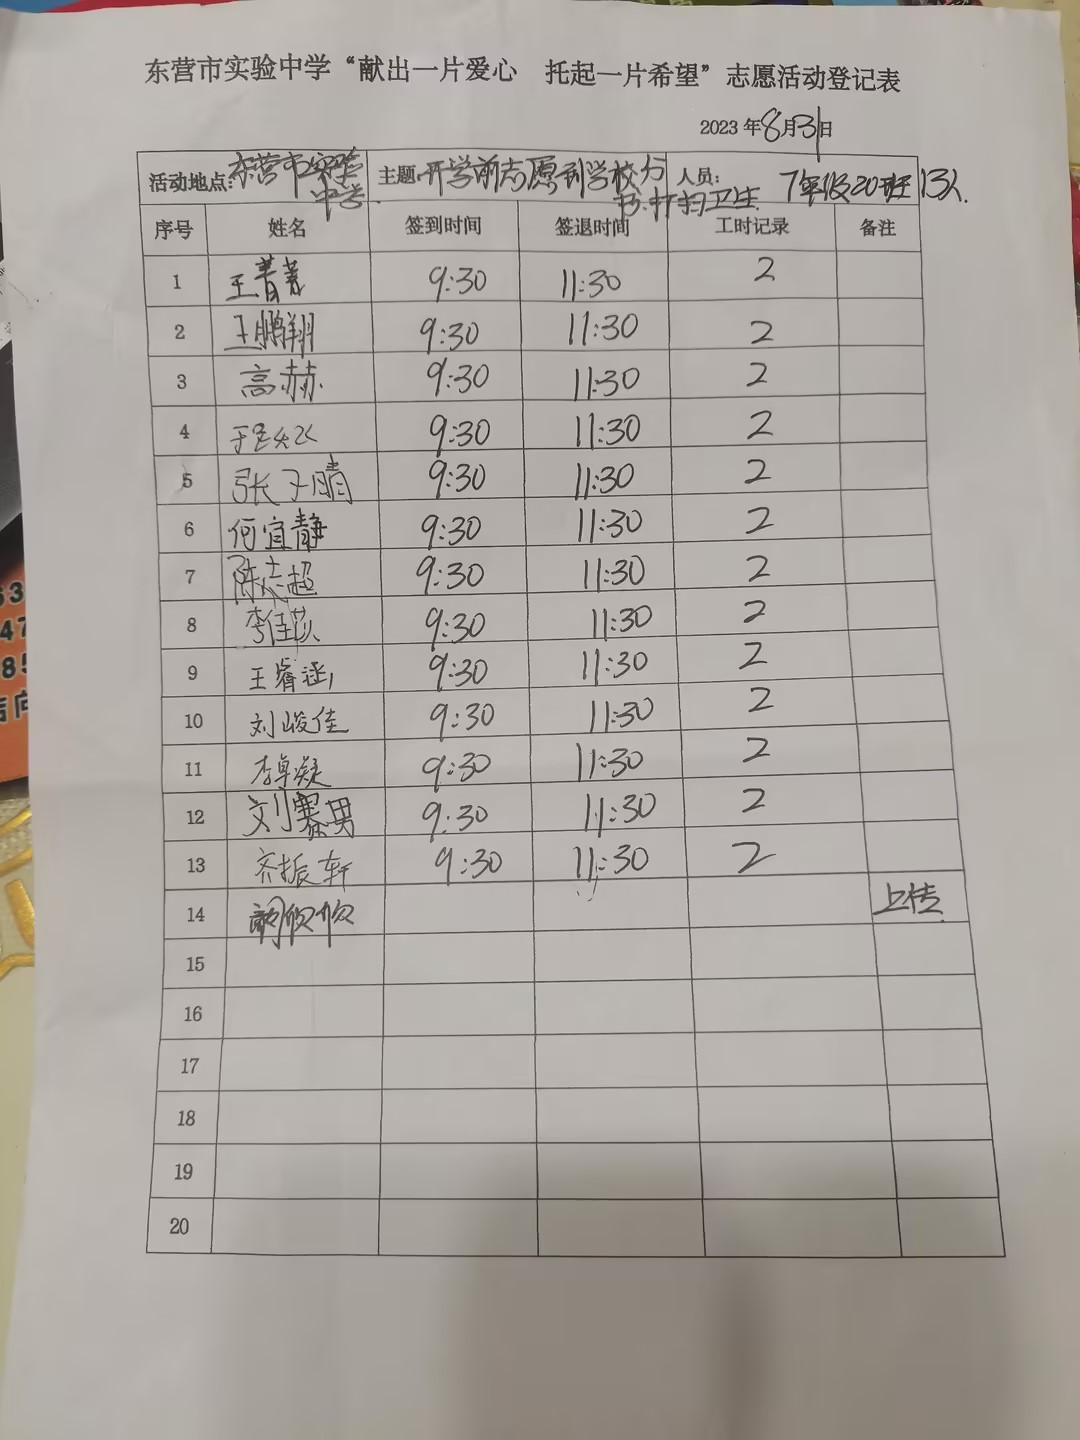 东营市实验中学“献出一片爱心 托起一片希望”志愿活动登记表
2023年8月31日
活动地点:东营市实验中学. 主题:开学前志愿到学校分书.打扫卫生. 人员: 7年级20班13人.
序号 姓名 签到时间 签退时间 工时记录 备注
1 王菁菁 9:30 11:30 2
2 王鹏翔 9:30 11:30 2
3 高赫 9:30 11:30 2
4 9:30 11:30 2
5 张子晴 9:30 11:30 2
6 何宜静 9:30 11:30 2
7 陈志超 9:30 11:30 2
8 李佳 9:30 11:30 2
9 王睿涵 9:30 11:30 2
10 刘峻佳 9:30 11:30 2
11 李卓凝 9:30 11:30 2
12 刘赛男 9:30 11:30 2
13 齐振轩 9:30 11:30 2
14 上传
15
16
17
18
19
20